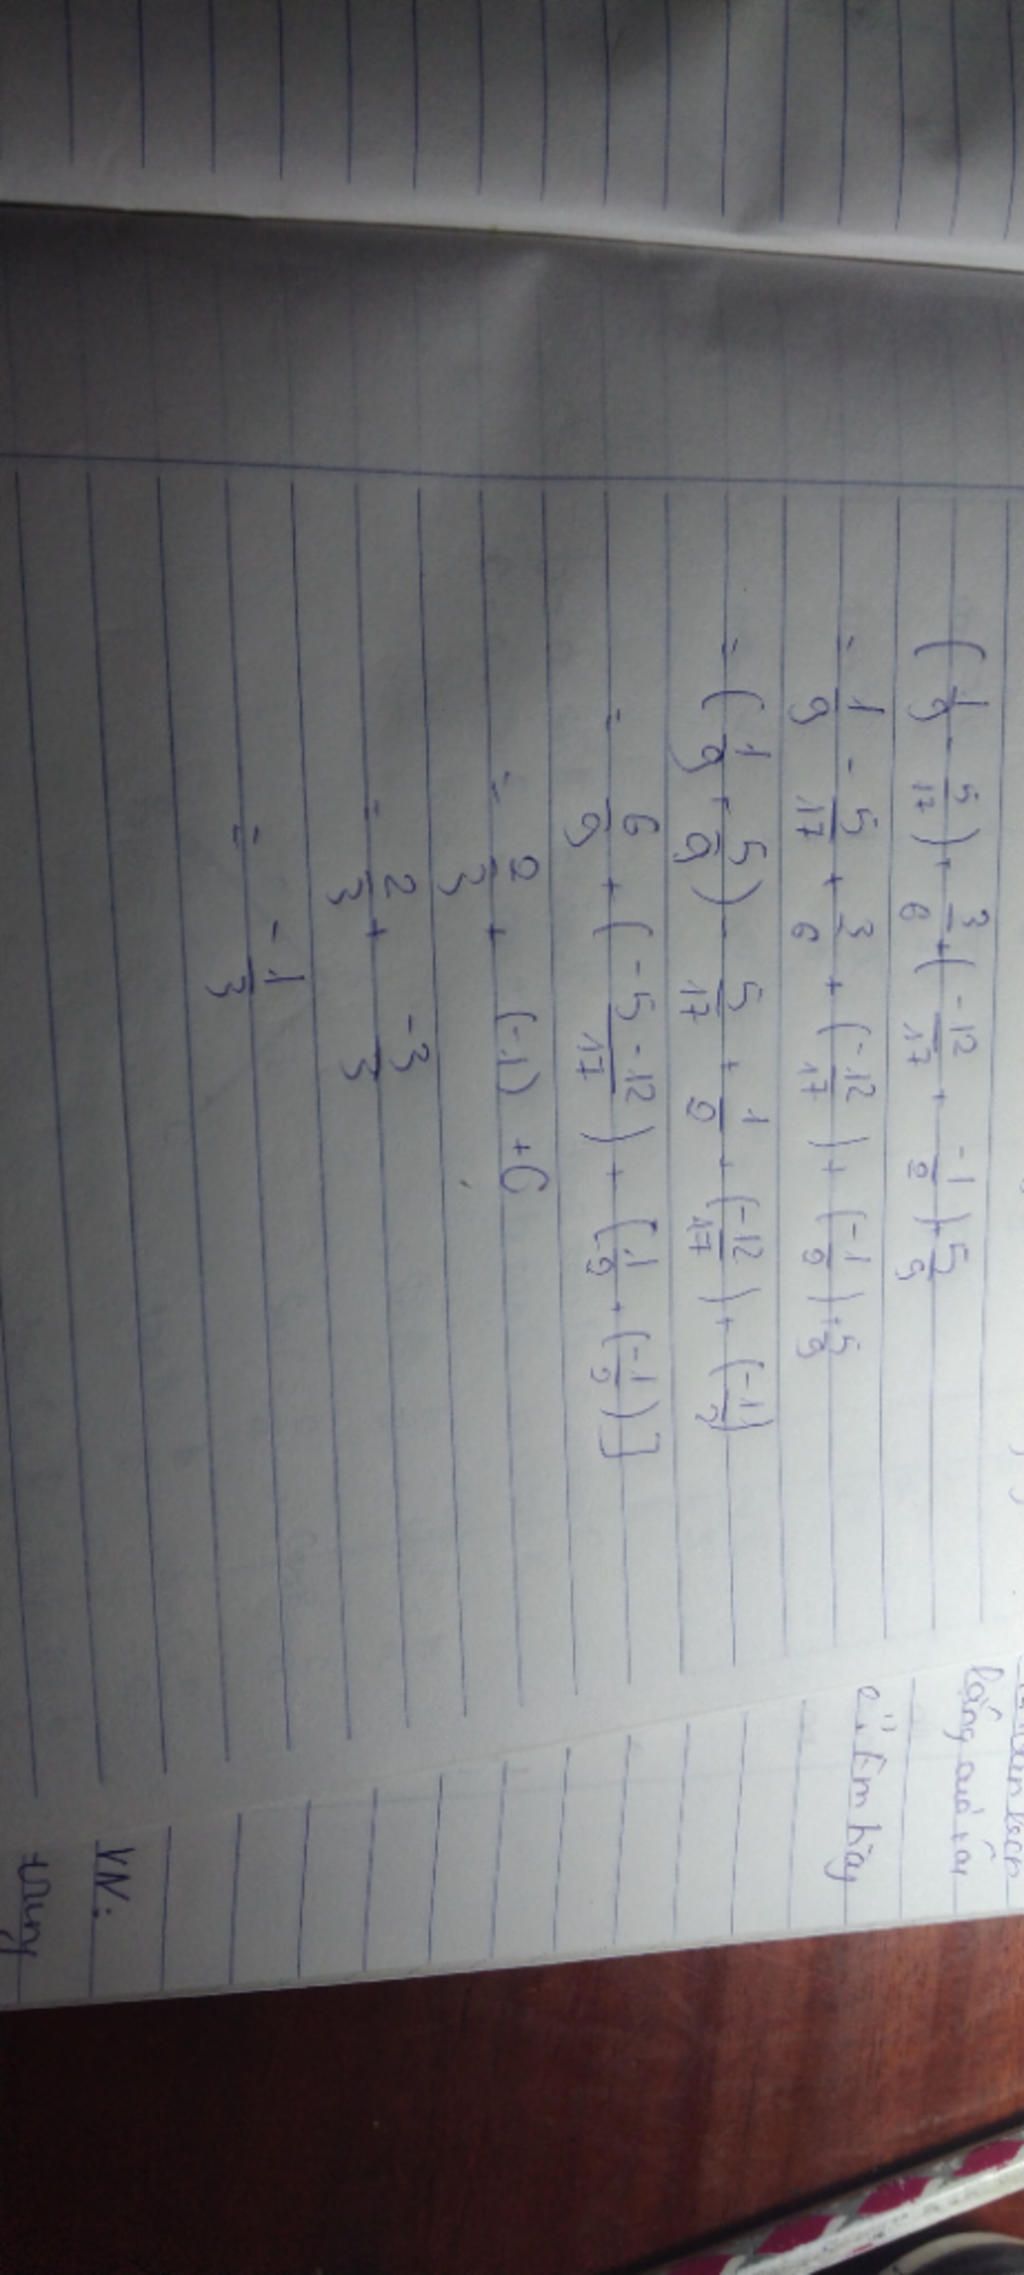 (1/9 - 5/17) + 3/6 + (-12/17 + -1/2) + 5/9
= 1/9 - 5/17 + 3/6 + (-12/17) + (-1/2) + 5/9
= (1/9 + 5/9) - 5/17 + 1/2 + (-12/17) + (-1/2)
= 6/9 + (-5-12/17) + [1/2 + (-1/2)]
= 2/3 + (-1) + 0
= 2/3 + -3/3
= -1/3
Em hãy
VN: